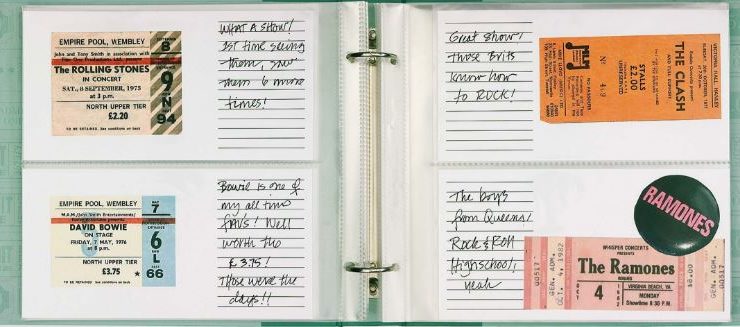 EMPIRE POOL, WEMBLEY
John and Tony Smith in association with
The ROLLING STONES
IN CONCERT
SAT., 8 SEPTEMBER, 1973
at 3 p.m.
NORTH UPPER TIER
£2.20
TO BE RETAINED. See conditions on back
SEPTEMBER
8
ENTRANCE
9
N
94
WHAT A SHOW!
1ST time seeing
them, saw
them 6 more
times!
EMPIRE POOL, WEMBLEY
DAVID BOWIE
ON STAGE
FRIDAY, 7 MAY, 1976
at 8 p.m.
NORTH UPPER TIER
£3.75
TO BE RETAINED. See conditions on back
MAY
7
6
L
66
Bowie is one of
my all time
FAVS! Well
worth the
£3.75!
Those were the
days!!
Great show!
Those Brits
know how
to ROCK!
THE CLASH
AND FULL SUPPORT
STALLS
£2.00
UNRESERVED
MLP
No
The boys
from Queens!
Rock & Roll
Highschool,
yeah
RAMONES
WHISPER CONCERTS
PRESENTS
The Ramones
OCT
4
1982
VIRGINIA BEACH, VA
MONDAY
Showtime 8:30 P.M.
GEN. ADM.
OCT 4 1982